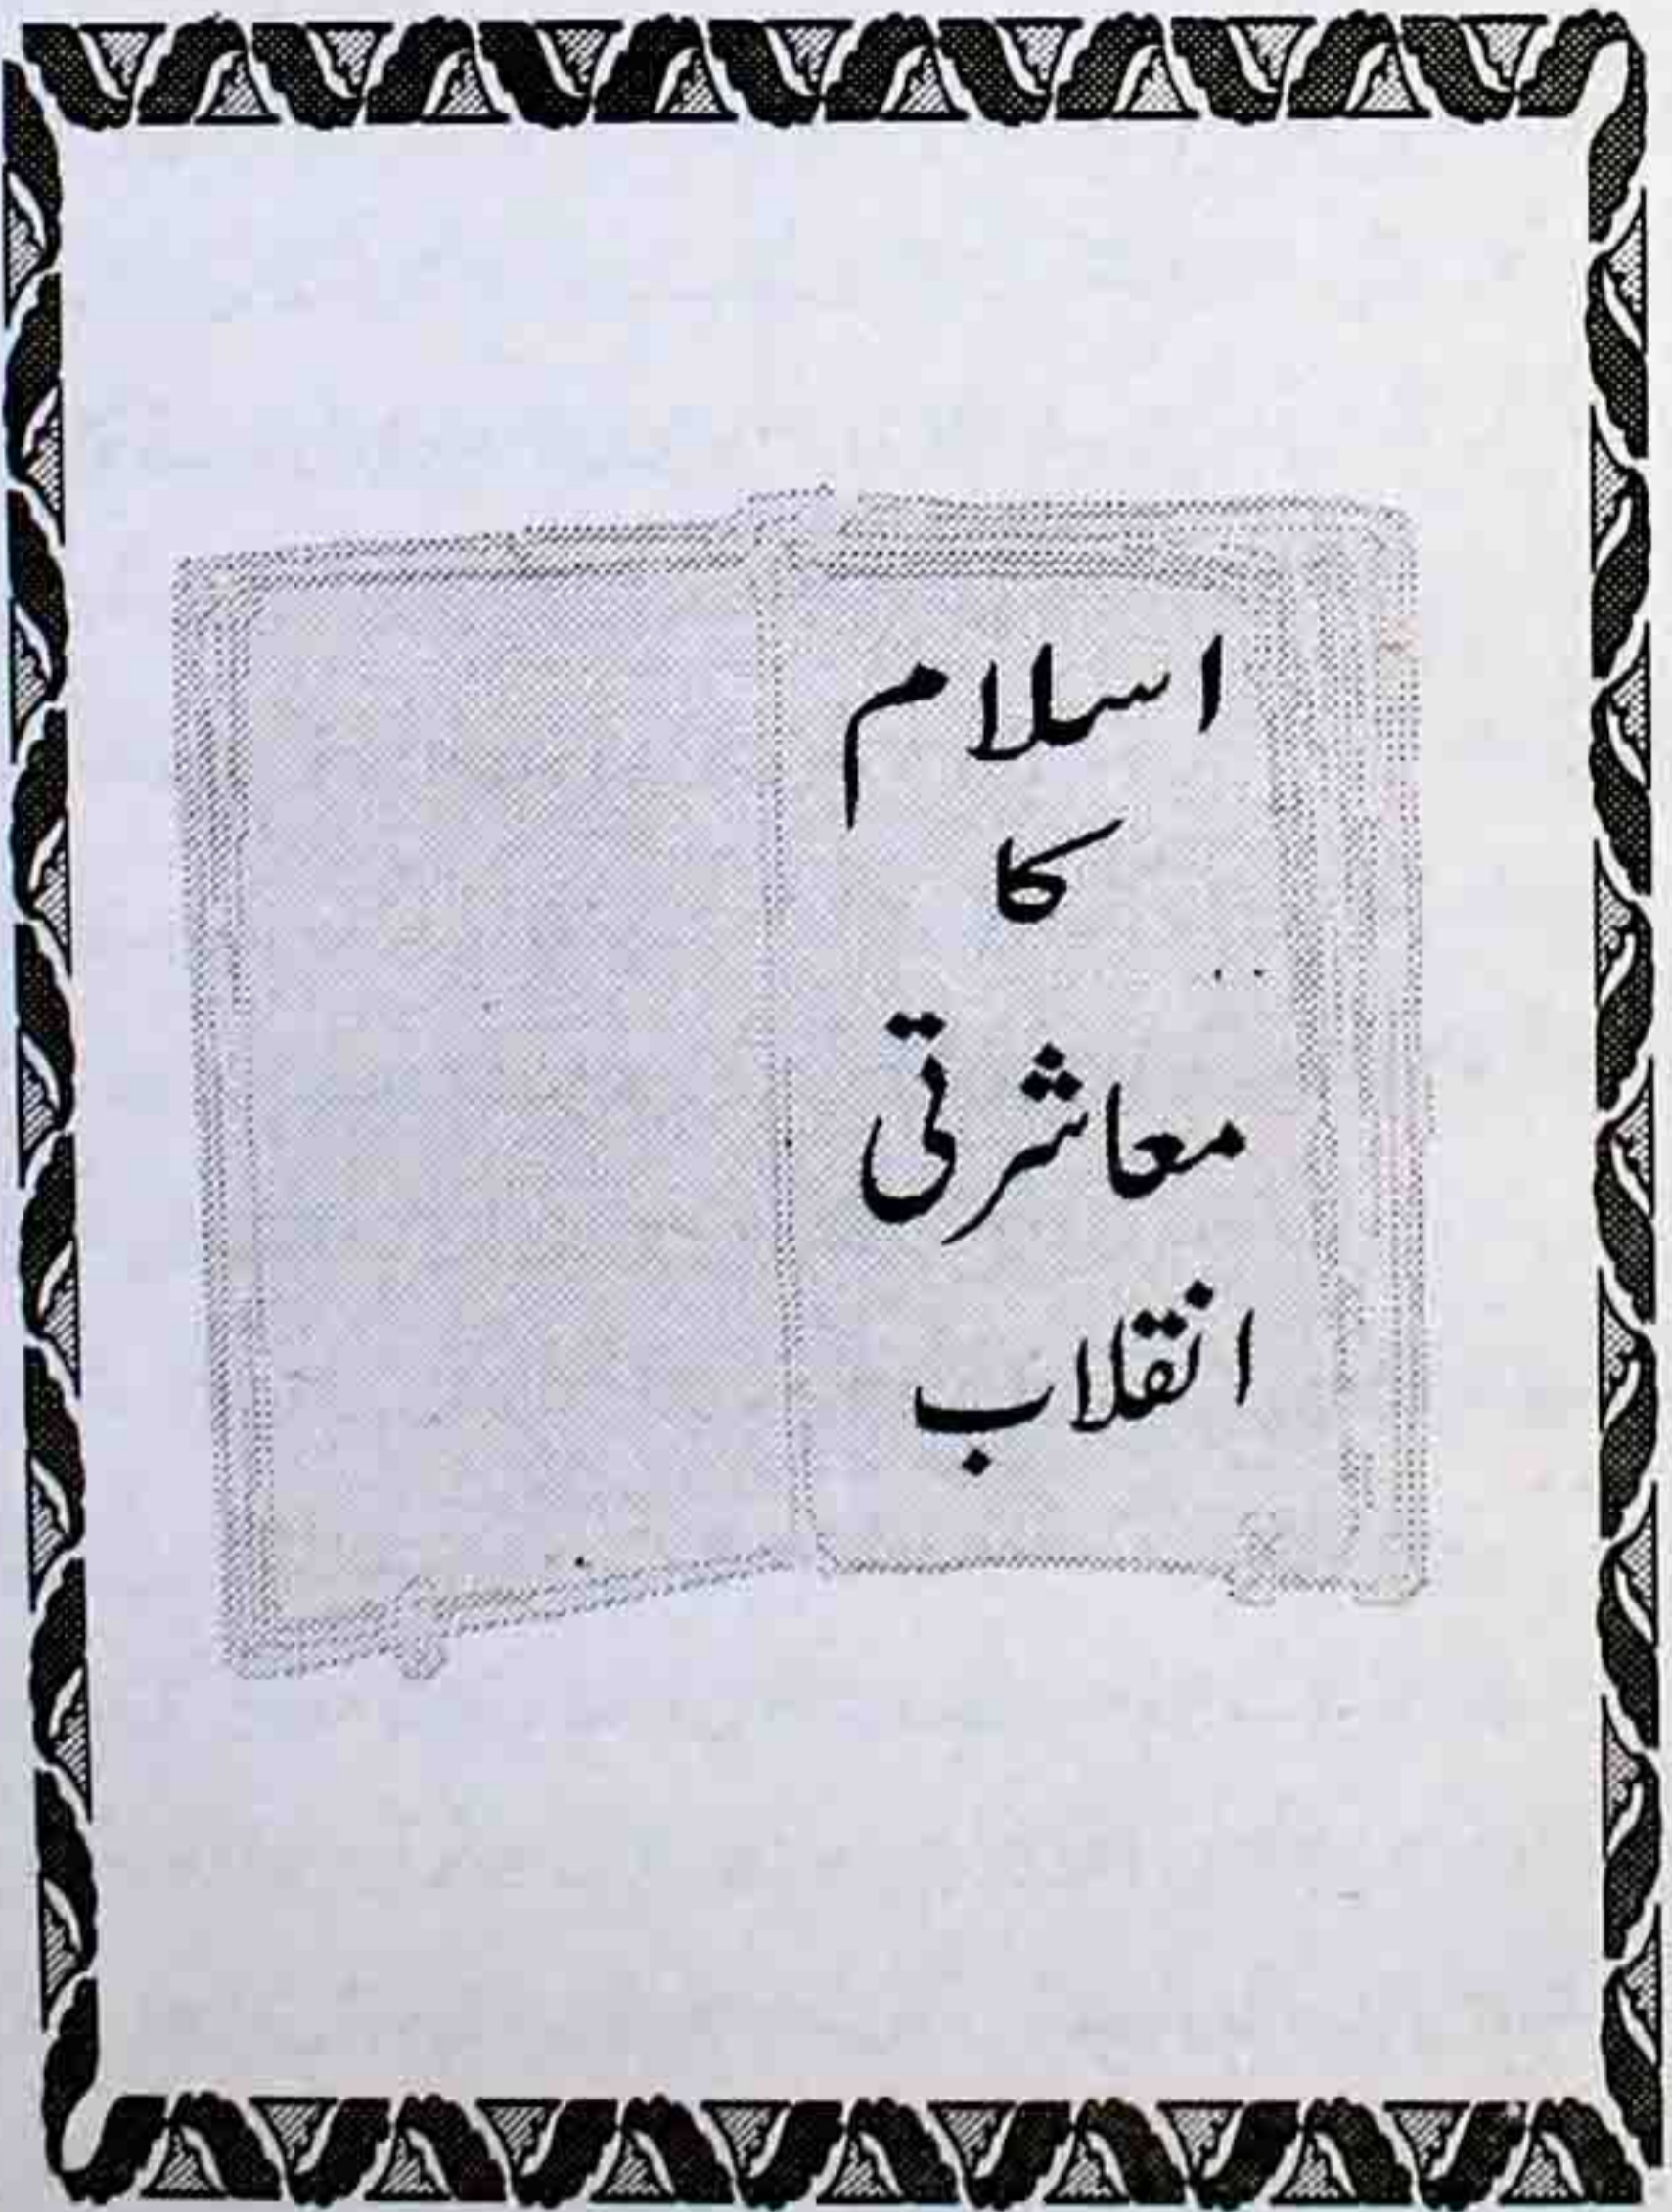 اسلام
کا
معاشرتی
انقلاب